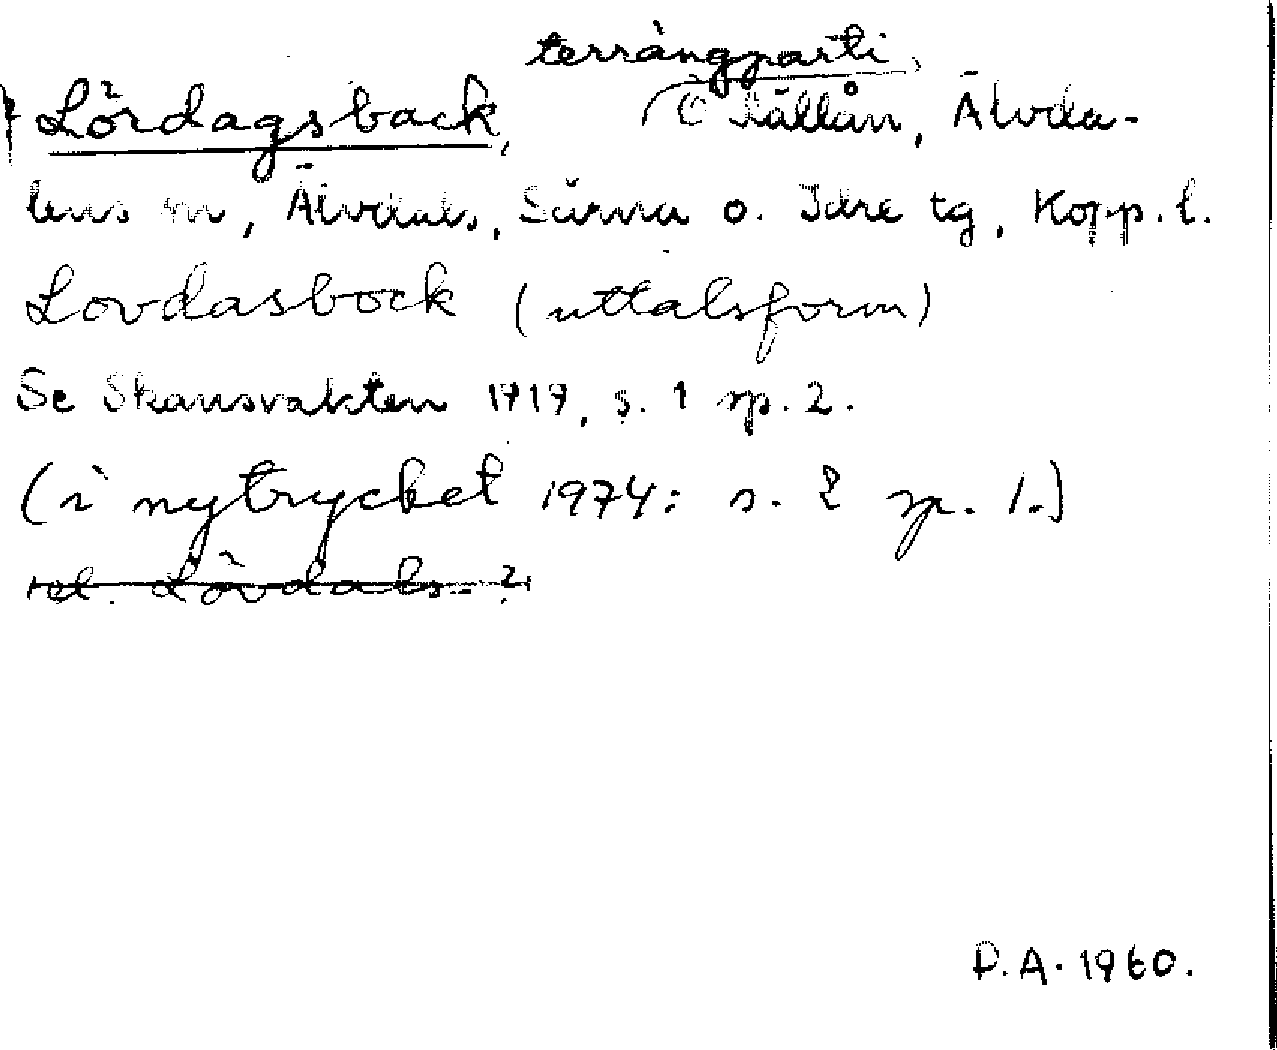 terrängparti,
Lördagsback, Nällån, Älvda-
lens sn, Älvdals, Särna o. Idre tg, Kopp. l.
Lovdasbock (uttalsform)
Se Skansvakten 1919, s. 1 sp. 2.
(i nytrycket 1974: s. 2 sp. 1.)
el. Lövdals- ?
D.A. 1960.